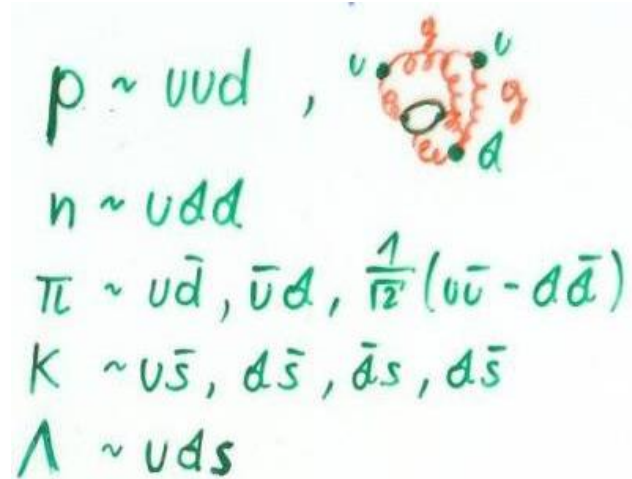 p ~ uud , u g u g d
n ~ udd
π ~ ud̄, ūd, 1/√2 (uū - dd̄)
K ~ us̄, ds̄, d̄s, ds̄
Λ ~ uds